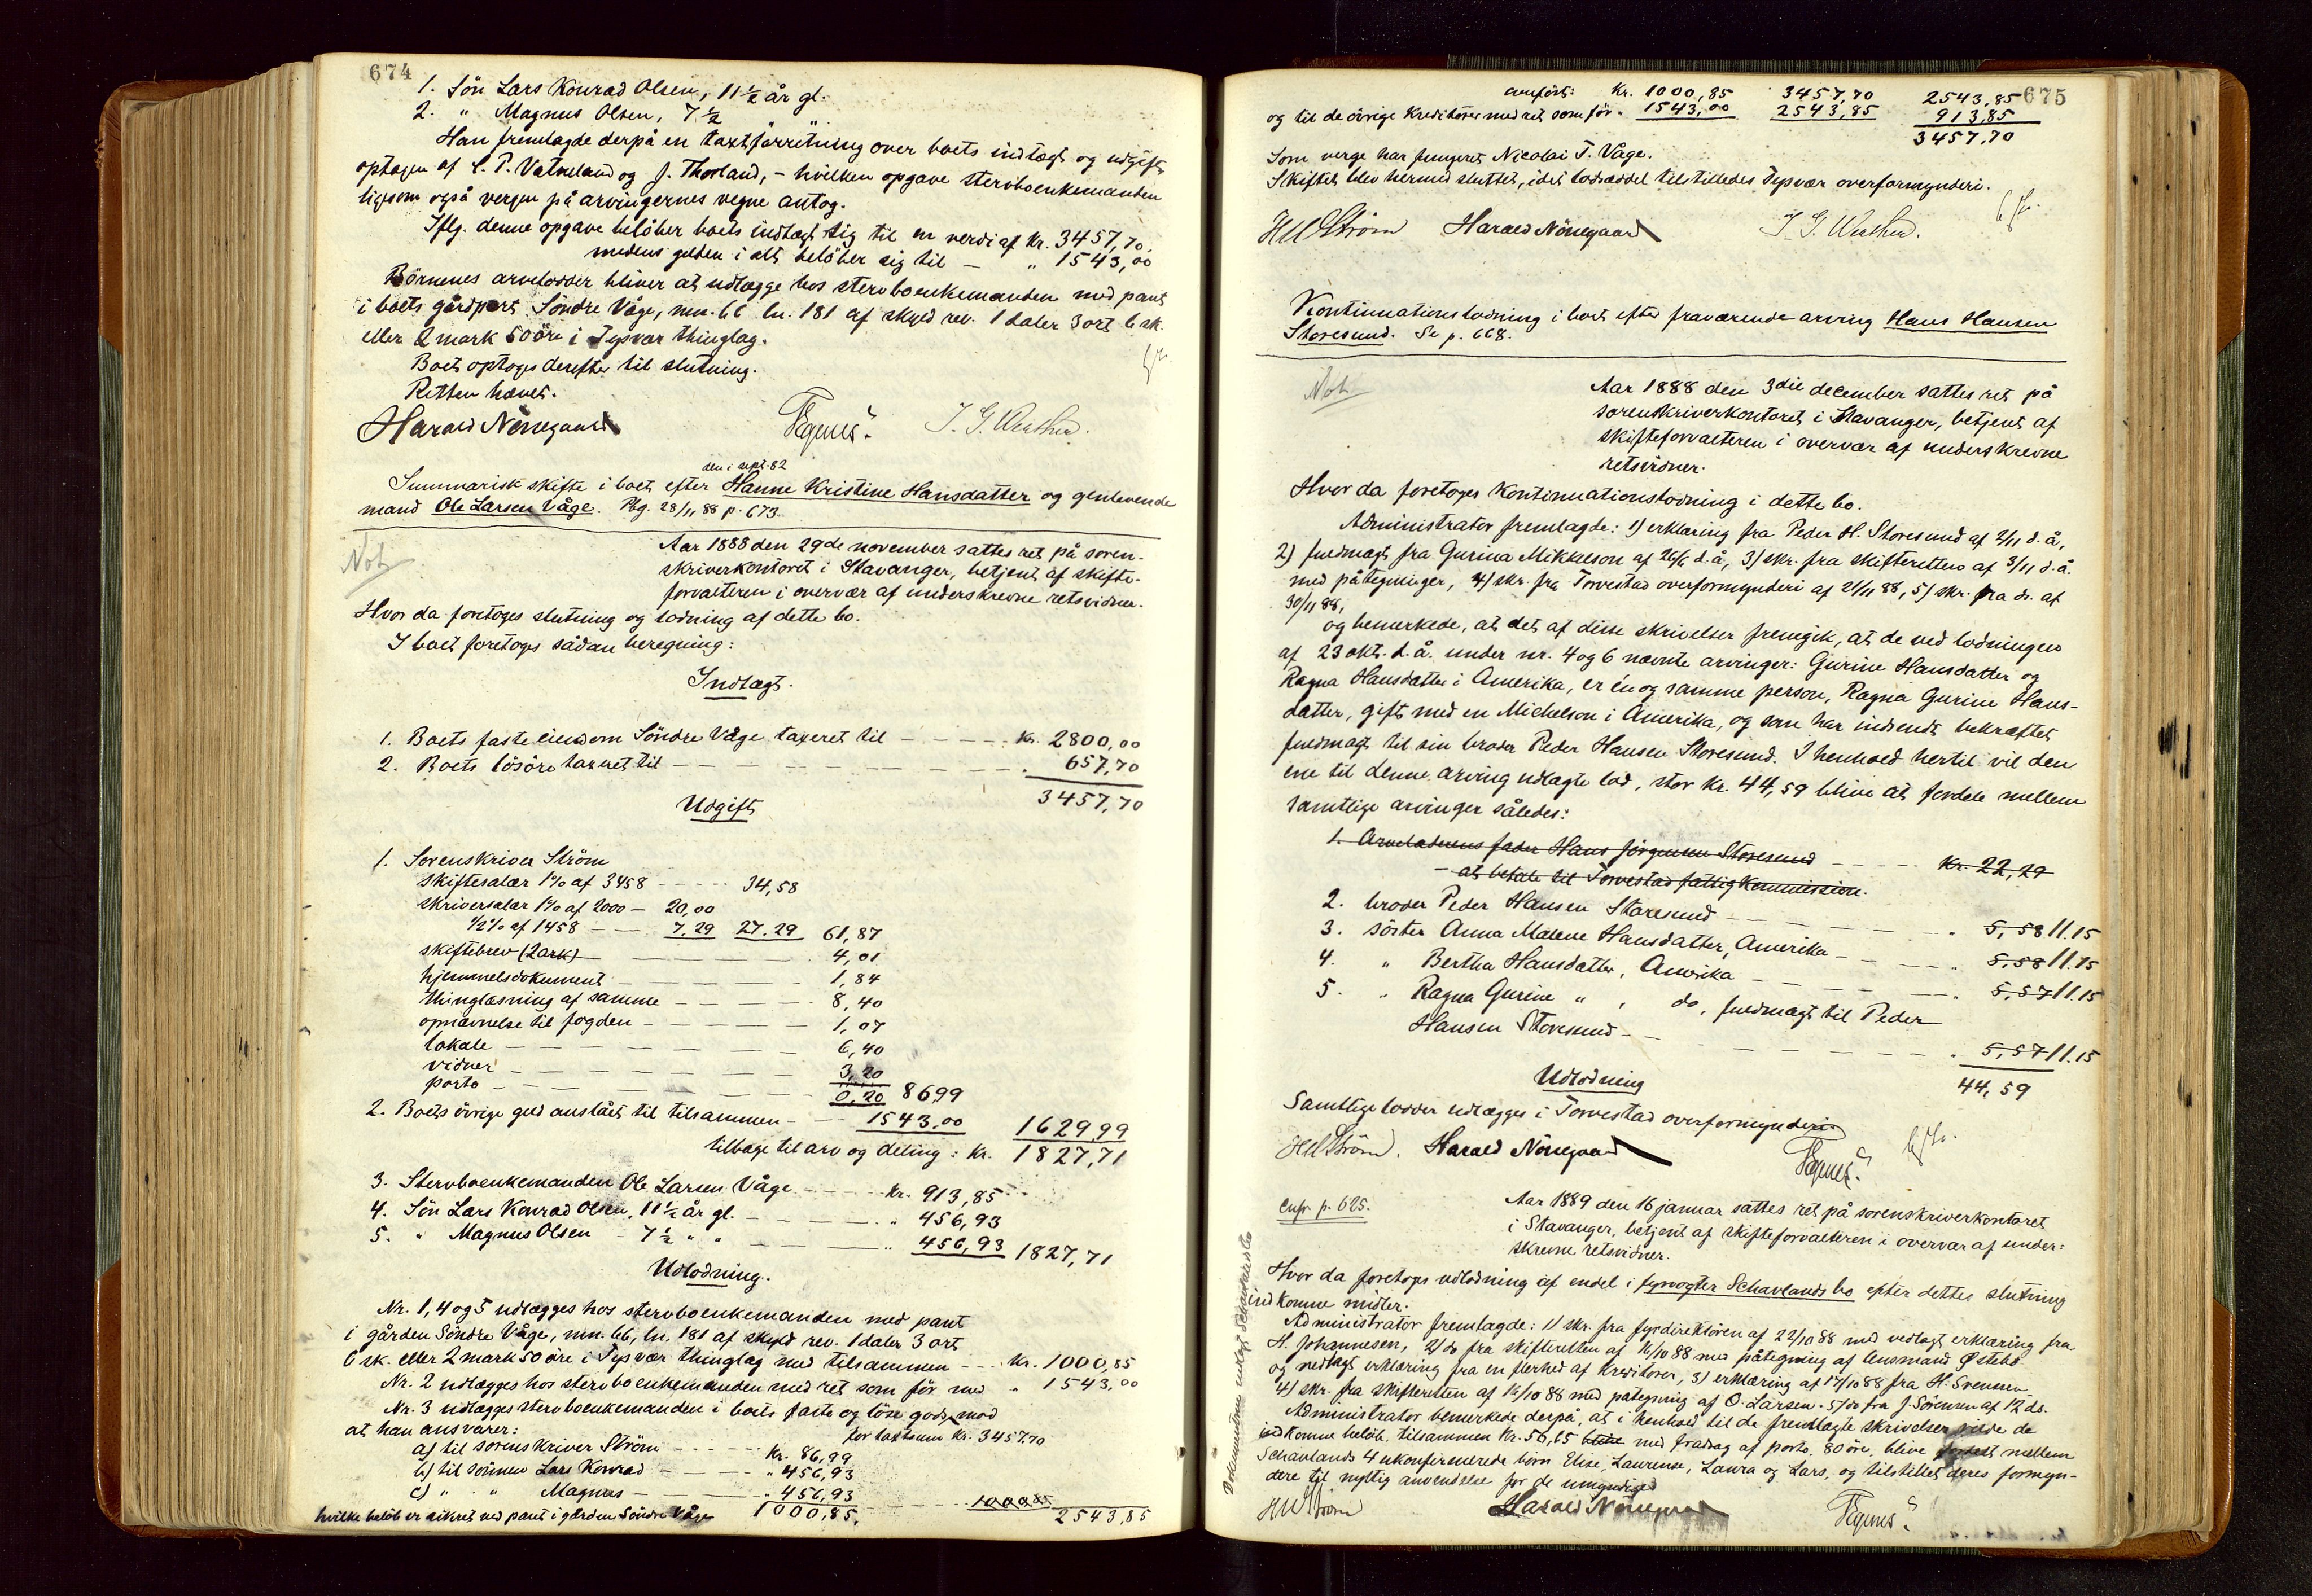 674
1. Sön Lars Konrad Olsen, 11½ år gl.
2. " Magnus Olsen, 7½
Han fremlagde derpå en taxtforretning over boets indtægt og udgift
optagen af C. P. Vatneland og J. Thorland, - hvilken opgave stervboenkemanden
ligesom også vergen på arvingernes vegne antog.
Iflg. denne opgave belöber boets indtægt sig til en verdi af Kr. 3457,70.
medens gjelden i alt belöber sig til — " 1543,00
Börnenes arvelodder bliver at udlægge hos stervboenkemanden med pant
i boets gårdpart Söndre Våge, mn. 66 ln. 181 af skyld rev. 1 daler 3 ort 6 sk.
eller 2 mark 50 öre i Tysvær thinglag.
Boet optoges derefter til slutning.
Retten hævet.
Harald Nönegaard J. G. Wathne.
den 1 sept. 82
Summarisk skifte i boet efter Hanne Kristine Hansdatter og gjenlevende
mand Ole Larsen Våge. Pbg. 28/11 88 p. 673.
Not
Aar 1888 den 29de november sattes ret på soren-
skriverkontoret i Stavanger, betjent af skifte-
forvalteren i overvær af underskrevne retsvidner.
Hvor da foretoges slutning og lodning af dette bo.
I boet foretoges sådan beregning:
Indtægt.
1. Boets faste eiendom Söndre Våge taxeret til — — — kr. 2800,00
2. Boets lösöre taxeret til — — — — " 657,70
3457,70
Udgift
1. Sorenskriver Ström
skiftesalær 1% af 3458 — — 34,58
skriversalær 1% af 2000 — 20,00
½% af 1458 — — 7,29 27.29 61,87
skiftebrev (2 ark) — — — 4,01
hjemmelsdokument — — — 1,84
thinglæsning af samme — — — 8,40
opnævnelse til fogden — — — 1,07
lokale — — — 6,40
vidner — — — 3,20
porto — — — 0,20 86,99
2. Boets övrige gjeld anslået til tilsammen — 1543,00 1629,99
tilbage til arv og deling: Kr. 1827,71
3. Stervboenkemanden Ole Larsen Våge — — Kr. 913,85
4. Sön Lars Konrad Olsen, 11½ år gl. — — " 456,93
5. " Magnus Olsen - 7½ " " — — " 456,93 1827,71
Udlodning.
Nr. 1, 4 og 5 udlægges hos stervboenkemanden med pant
i gården Söndre Våge, mn. 66, ln. 181 af skyld rev. 1 daler 3 ort
6 sk. eller 2 mark 50 öre i Tysvær thinglag med tilsammen — Kr. 1000,85
Nr. 2 udlægges hos stervboenkemanden med ret som för med " 1543,00
Nr. 3 udlægges stervboenkemanden i boets faste og löse gods mod
for taxtsum Kr. 3457.70
at han ansvarer:
a) til sorenskriver Ström — — Kr. 86,99
b) til sönnen Lars Konrad — — " 456,93
c) " " Magnus — — " 456,93 1000,85
hvilke belöb er sikret ved pant i gården Söndre Våge 1000,85. 2543,85
675
anfört: Kr. 1000,85 3457,70 2543,85
og til de övrige kreditorer med ret som för " 1543,00 2543,85 913,85
3457,70
Som verge har fungeret Nicolai T. Våge.
Skiftet blev hermed sluttet, idet lodseddel tilstilledes Tysvær overformynderi.
HM Ström Harald Nönegaard J. G. Wathne.
Kontinuationslodning i boet efter fraværende arving Hans Hansen
Storesund. Se p. 668.
Not
Aar 1888 den 3die december sattes ret på
sorenskriverkontoret i Stavanger, betjent af
skifteforvalteren i overvær af underskrevne
retsvidner.
Hvor da foretoges kontinuationslodning i dette bo.
Administrator fremlagde: 1) erklæring fra Peder H. Storesund af 2/11 d. å,
2) fuldmagt fra Gurina Mikkelson af 26/6 d. å, 3) skr. fra skifteretten af 3/11 d. å.
med påtegninger, 4) skr. fra Torvestad overformynderi af 21/11 88, 5) skr. fra do. af
30/11 88,
og bemerkede, at det af disse skrivelser fremgik, at de ved lodningen
af 23 okt. d. å. under nr. 4 og 6 nævnte arvinger: Gurine Hansdatter og
Ragna Hansdatter i Amerika, er én og samme person, Ragna Gurine Hans-
datter, gift med en Michelson i Amerika, og som har indsendt bekræftet
fuldmagt til sin broder Peder Hansen Storesund. I henhold hertil vil den
ene til denne arving udlagte lod, stor kr. 44,59 blive at fordele mellem
samtlige arvinger således:
1. Arveladerens fader Hans Jörgensen Storesund — — — Kr. 22,29
- at betale til Torvestad fattigkommission.
2. broder Peder Hansen Storesund — — — " 5,58 11.15
3. söster Anna Malene Hansdatter, Amerika — — — " 5,58 11.15
4. " Bertha Hansdatter, Amerika — — — " 5,57 11.15
5. " Ragna Gurine " , do, fuldmagt til Peder
Hansen Storesund — — — " 5,57 11.15
44,59
Udlodning
Samtlige lodder udlægges i Torvestad overformynderi
HM Ström. Harald Nönegaard
Cnfr. p. 625.
Aar 1889 den 16 januar sattes ret på sorenskriverkontoret
i Stavanger, betjent af skifteforvalteren i overvær af under-
skrevne retsvidner.
Hvor da foretoges udlodning af endel i fyrvogter Schavlands bo efter dettes slutning
indkomne midler.
Administrator fremlagde: 1) skr. fra fyrdirektören af 22/10 88 med vedlagt erklæring fra
H. Johannesen, 2) do fra skifteretten af 16/10 88 med påtegning af lensmand Østebö
og vedlagt erklæring fra en flerhed af kreditorer, 3) erklæring af 17/10 88 fra H. Svensen
4) skr. fra skifteretten af 16/10 88 med påtegning af O. Larsen. 5) do fra J. Sörensen af 12 ds.
Administrator bemerkede derpå, at i henhold til de fremlagte skrivelser vilde de
indkomne belöb, tilsammen Kr. 56,65 blive med fradrag af porto, 80 öre, blive fordelt mellem
Schavlands 4 ukonfirmerede börn Elise, Laurense, Laura og Lars, og tilstillet deres formyn-
dere til nyttig anvendelse for de umyndige
HM Ström Harald Nönegaard
Dokumenterne indlagt Schavlands bo